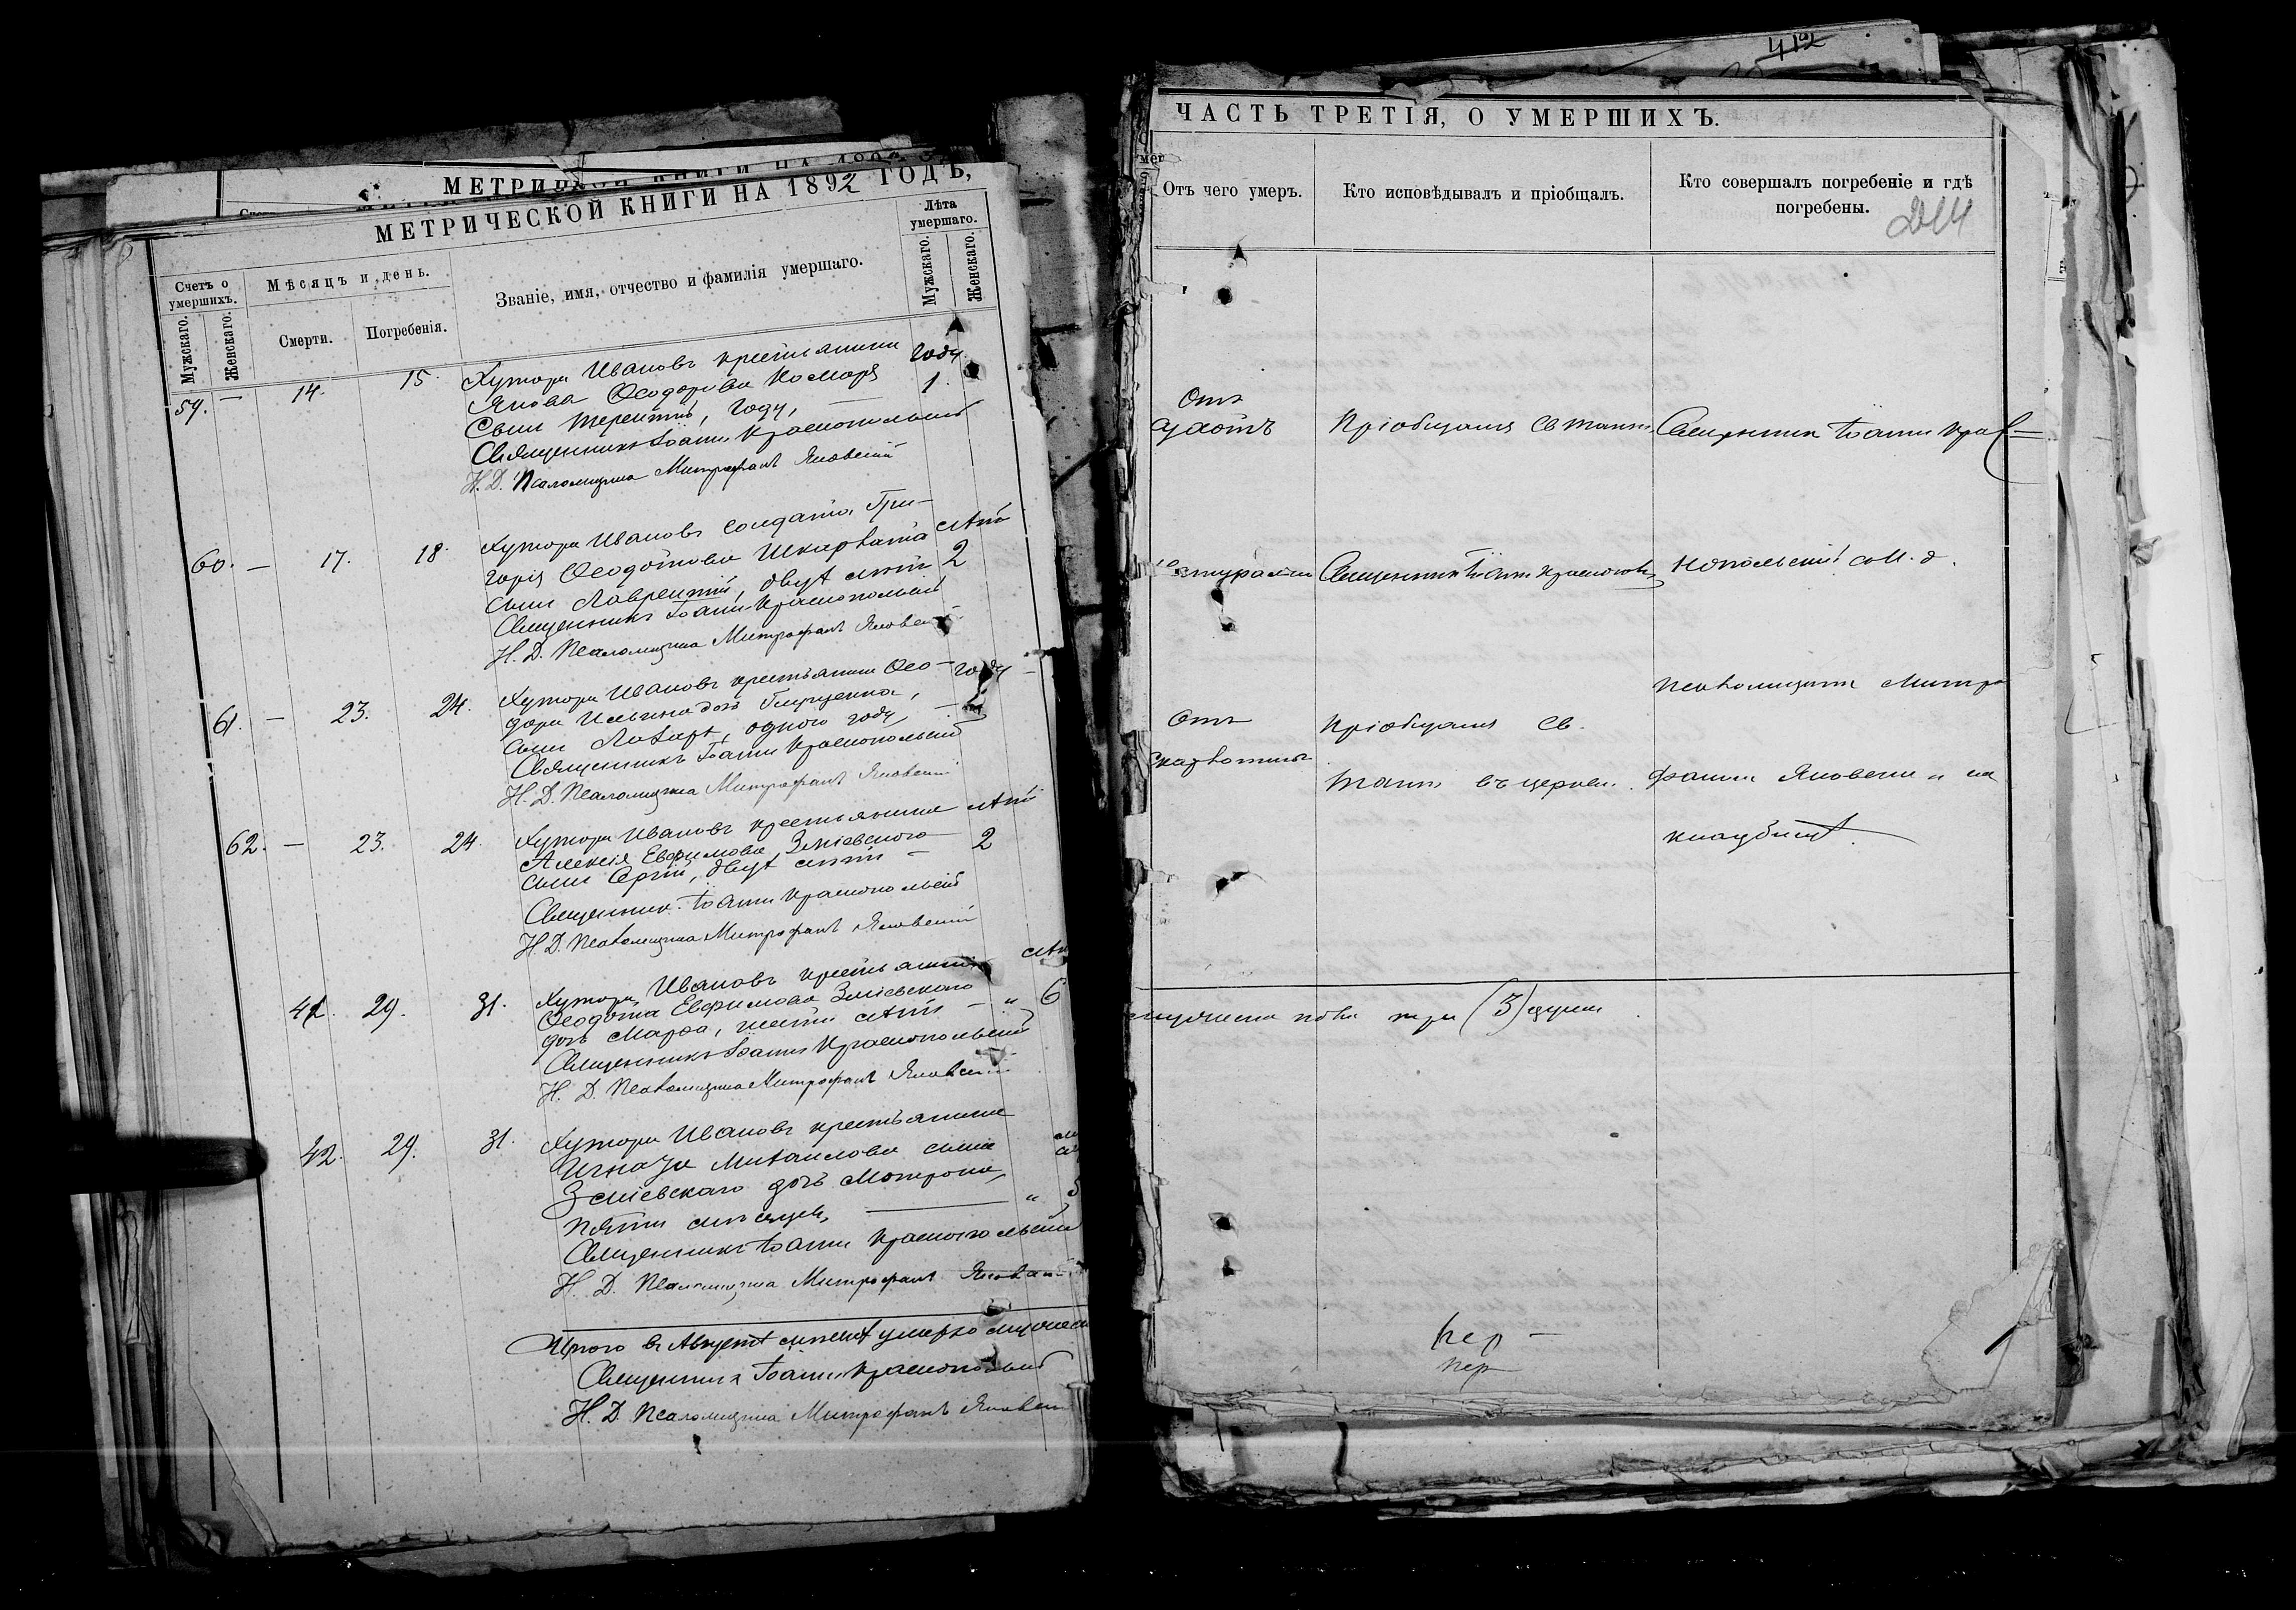 МЕТРИЧЕСКОЙ КНИГИ НА 1892 ГОДЪ,
Счетъ о умершихъ.
Мужскаго.
Женскаго.
Мѣсяцъ и день.
Смерти.
Погребенія.
Званіе, имя, отчество и фамилія умершаго.
Лѣта умершаго.
Мужскаго.
Женскаго.
59. — 14. 15. Хутора Ивановъ крестьянина году
Якова Ѳеодорова Комаря 1.
сынъ Терентій, году, —
Священникъ Іоаннъ Краснопольскій
И. Д. Псаломщика Митрофанъ Яновскій
60. — 17. 18. Хутора Ивановъ солдата Гри-
горія Ѳеодотова Шкарбата лѣтъ
сынъ Лаврентій, двухъ лѣтъ 2
Священникъ Іоаннъ Краснопольскій
И. Д. Псаломщика Митрофанъ Яновскій
61. — 23. 24. Хутора Ивановъ крестьянина Ѳео- году —
дора
сынъ Лазарь, одного году, — 1
Священникъ Іоаннъ Краснопольскій
И. Д. Псаломщика Митрофанъ Яновскій
62. — 23. 24. Хутора Ивановъ крестьянина лѣтъ
Алексія Евфимова Зміевского 2
сынъ Сергій, двухъ лѣтъ —
Священник Іоаннъ Краснопольскій
И. Д. Псаломщика Митрофанъ Яновскій
41. 29. 31. Хутора Ивановъ крестьянина
Ѳеодота Евфимова Зміевскаго
дочь Марѳа, шести лѣтъ — „ 6
Священникъ Іоаннъ Краснопольскій
И. Д. Псаломщика Митрофанъ Яновскій
42. 29. 31. Хутора Ивановъ крестьянина
Игната Михаилова сына
Зміевскаго дочь Мотрона,
пяти мѣсяцев, — „ 5
Священникъ Іоаннъ Краснопольскій
И. Д. Псаломщика Митрофанъ Яновскій
Итого въ Августѣ мѣсяцѣ умерло
Священникъ Іоаннъ Краснопольскій
И. Д. Псаломщика Митрофанъ Яновскій
412
ЧАСТЬ ТРЕТІЯ, О УМЕРШИХЪ.
Отъ чего умеръ.
Кто исповѣдывалъ и пріобщалъ.
Кто совершалъ погребеніе и гдѣ погребены.
Отъ
Пріобщалъ Св. Таинъ Священникъ Іоаннъ Крас-
Священникъ Іоаннъ нопольскій съ И. д.
псаломщика Митро
Отъ Пріобщалъ Св.
скарлотины Таинъ въ церкви. фаномъ Яновскимъ на
кладбищѣ.
пола три (3) души
пер —
пер